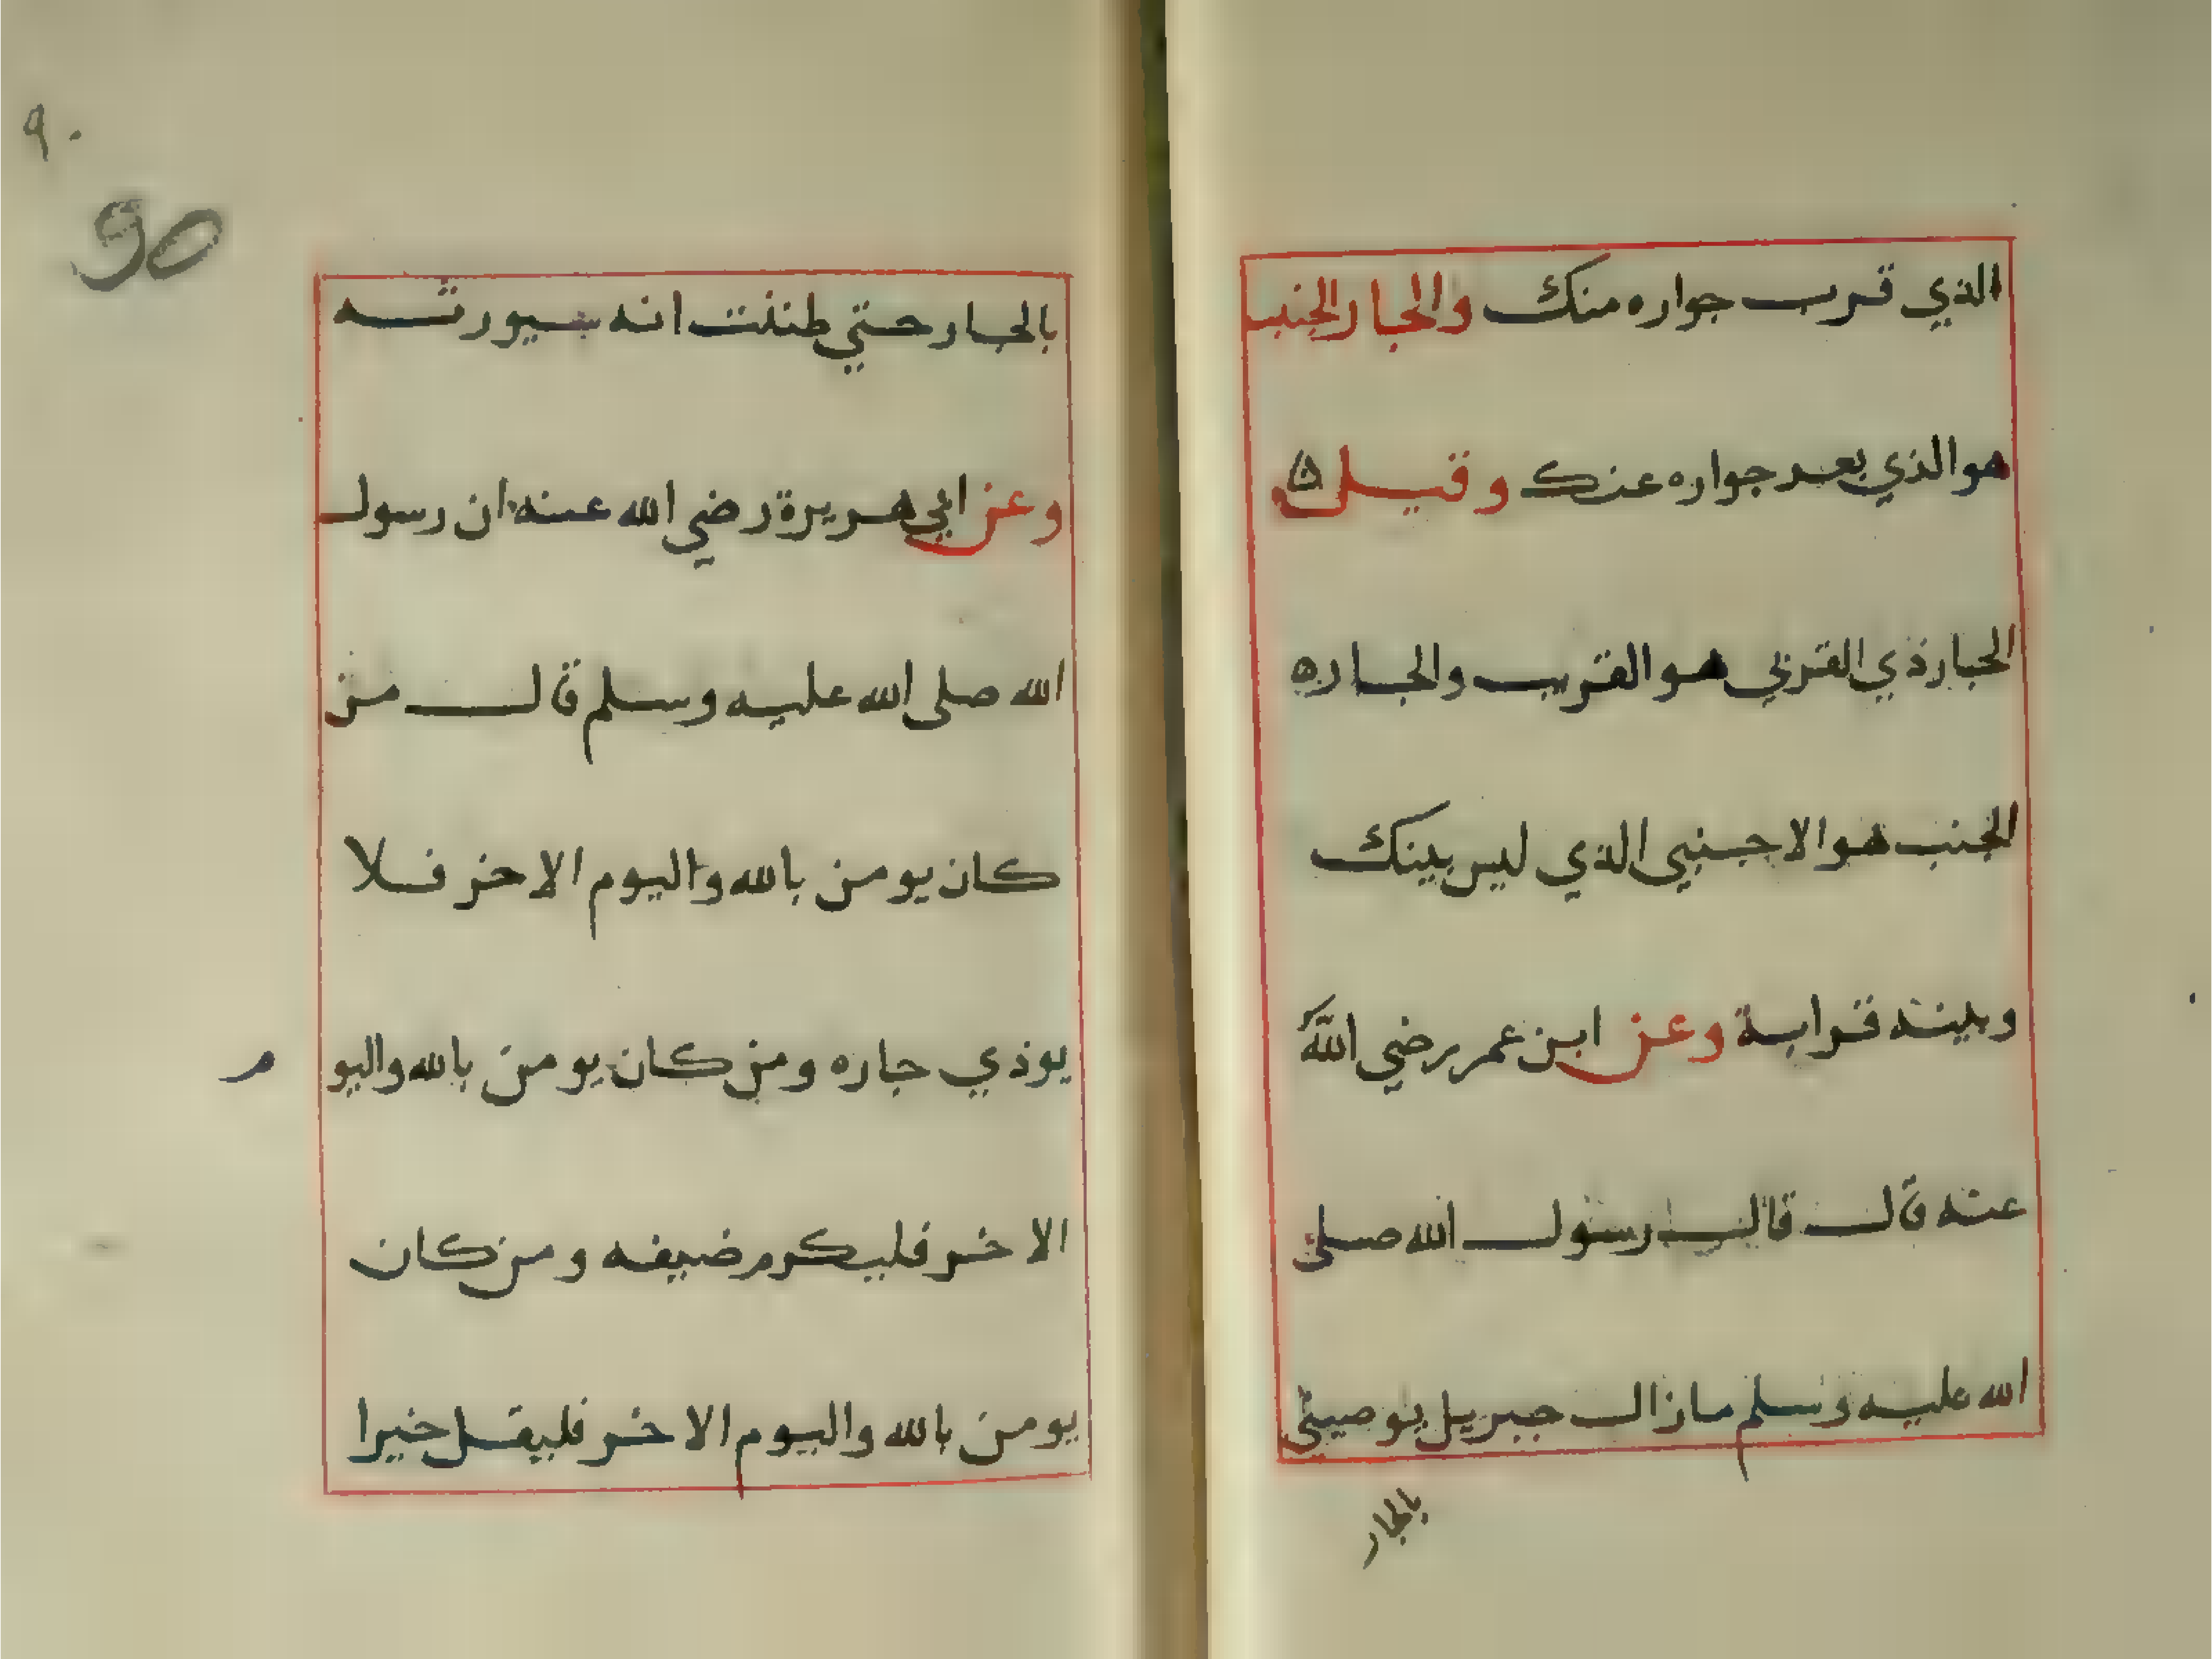 الذي قرب جواره منك والجار الجنب
هو الذي بعد جواره عنك وقيل ه
الجار ذي القربي هو القريب والجار ه
الجنب هو الاجنبي الذي ليس بينك
وبينه قرابة وعن ابن عمر رضي الله
عنه قال قال رسول الله صلى
الله عليه وسلم ما زال جبريل يوصيني
بالجار
٩٠
90
بالجار حتي ظننت انه سيورثه
وعن ابي هريرة رضي الله عنه ان رسول
الله صلى الله عليه وسلم قال من
كان يومن بالله واليوم الاخر فلا
يوذي جاره ومن كان يومن بالله واليو م
الاخر فليكرم ضيفه ومن كان
يومن بالله واليوم الاخر فليقل خيرا